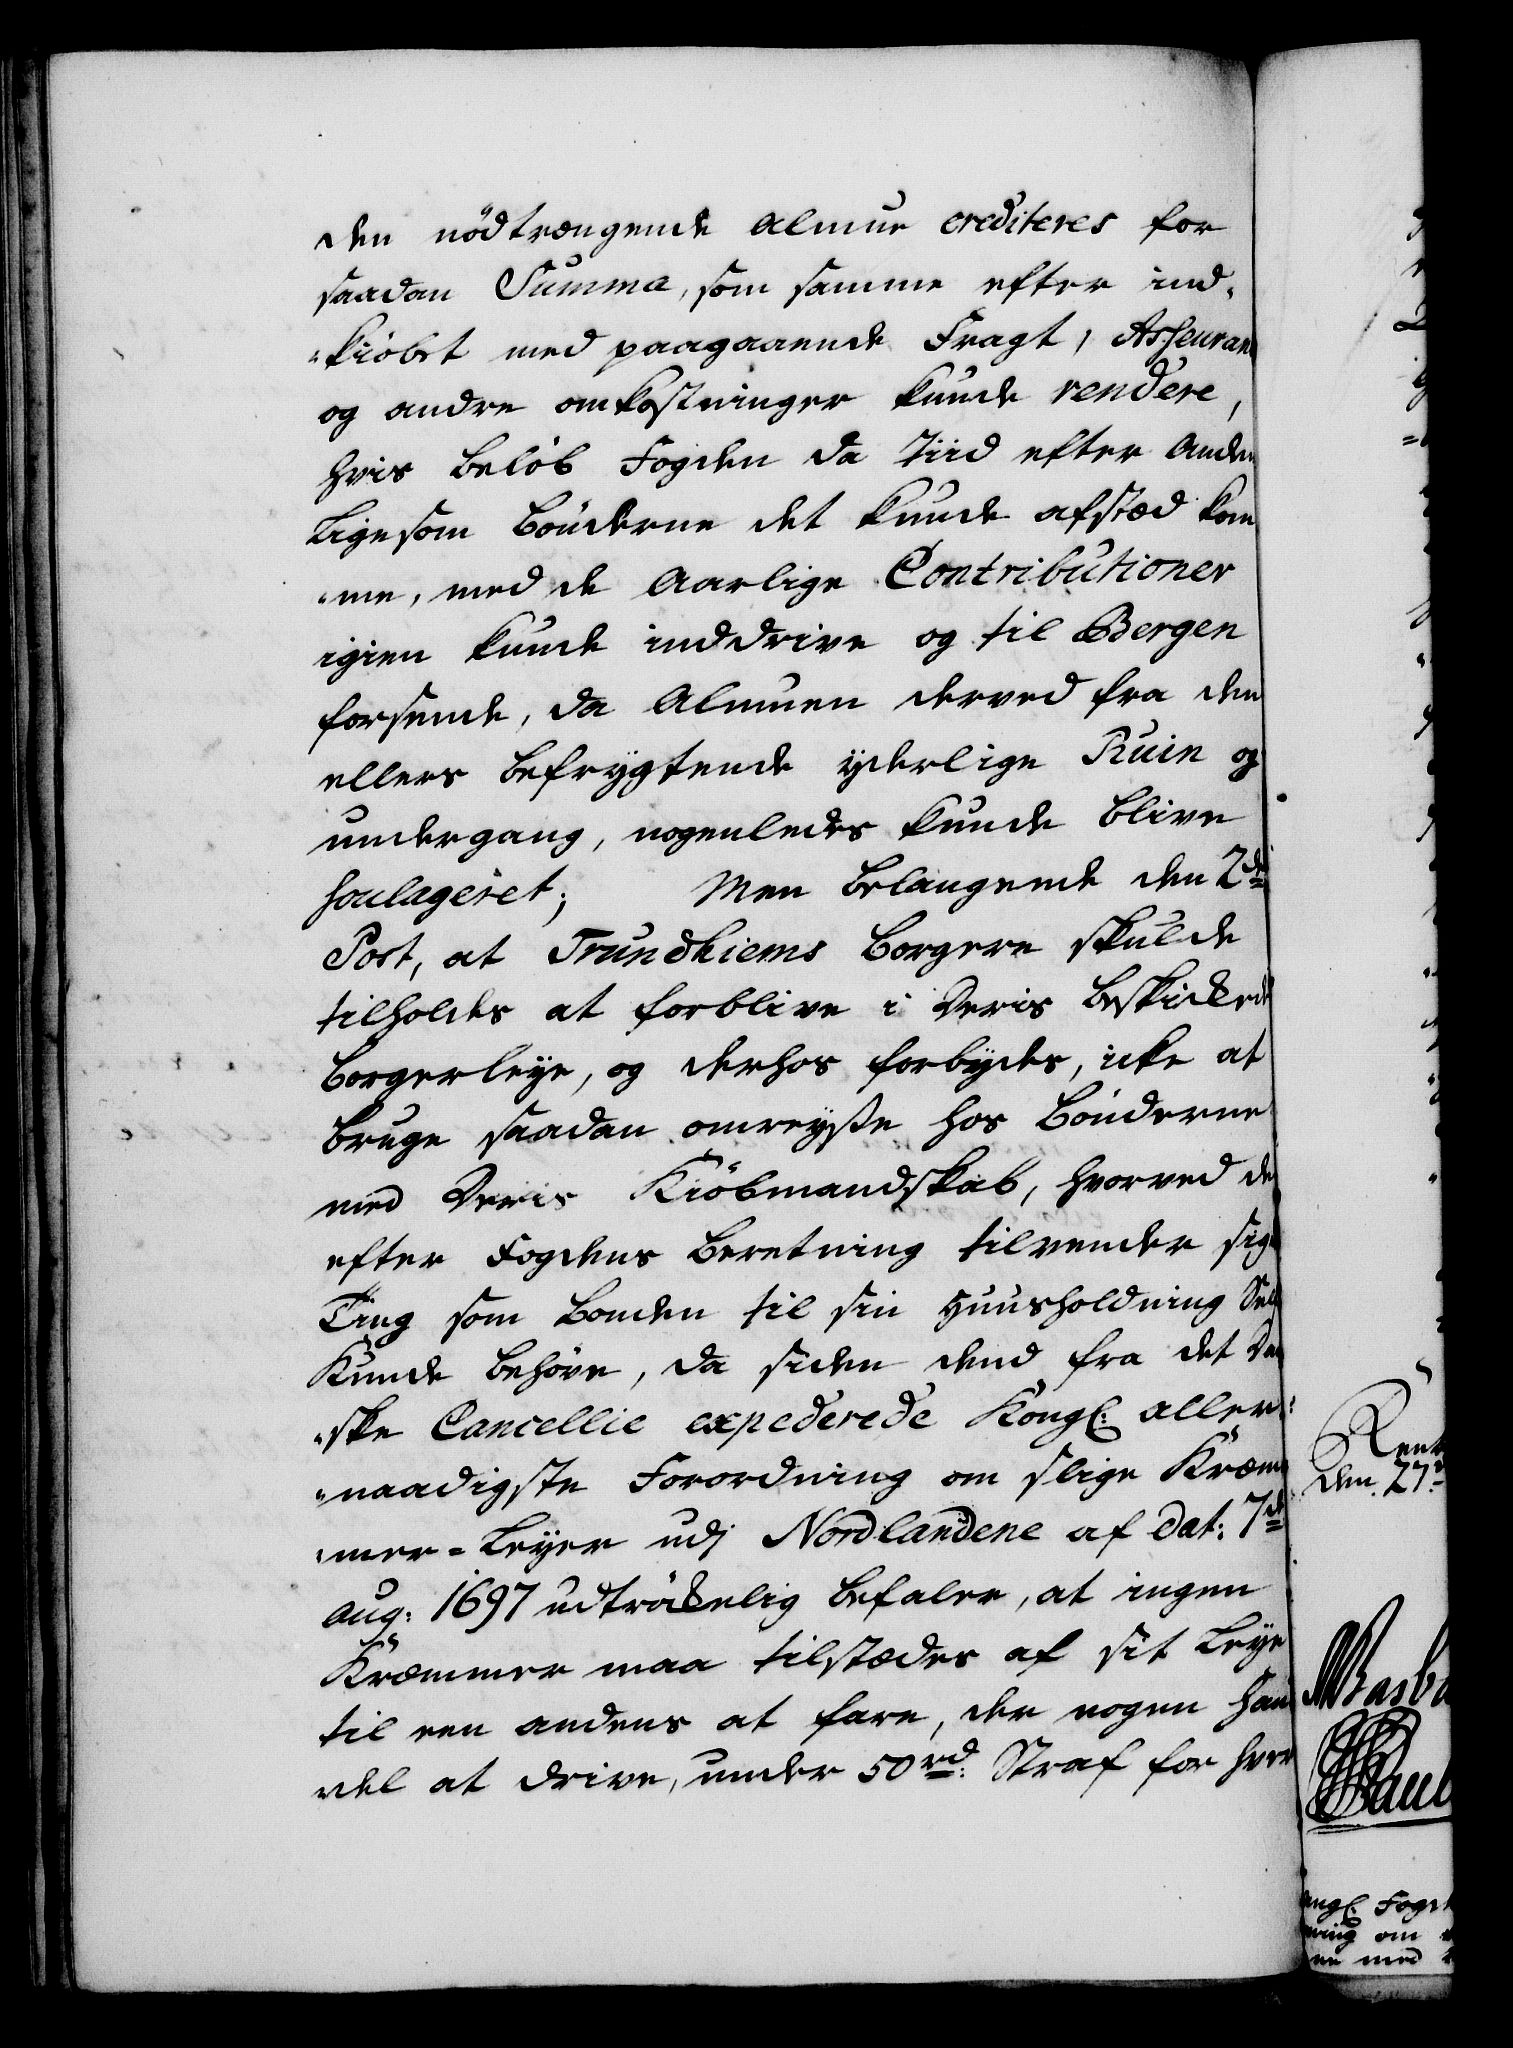 den nödtrængende Almue crediteres for
saadan Summa, som samme efter ind-
-kiöbet med paagaaende Fragt, Asseuran
og andre omkostninger kunde rendere,
hvis Belöb Fogden da Tiid efter Anden
Ligesom Bönderne det kunde afsted kom
-me, med de Aarlige Contributioner
igien kunde inddrive og til Bergen
forsende, da Almuen derved fra den
ellers befrygtende yderlige Ruin og
undergang, nogenledes kunde blive
soulageret; Men Belangende den 2de
Post, at Trundhiems Borgere skulde
tilholdes at forblive i Deris beskickede
Borgerleye, og derhos forbydes, icke at
bruge saadan omreyse hos Bönderne
med Deris Kiöbmandskab, hvorved de
efter Fogdens Beretning tilvender sig
Ting som Bonden til sin Huusholdning Selv
Kunde behöve, da siden dend fra det Dan
-ske Cancellie expederede Kongl: aller-
-naadigste Forordning om slige Kræm
-mer-Leyer udj Nordlandene af dat: 7de
Aug: 1697 udtröckelig befaler, at ingen
Kræmmer maa tilstædes af sit Leye
til een andens at fare, der nogen Han
del at drive, under 50 rd: Straf for hver
Rent
den 27
Kongl: Fog
om
med